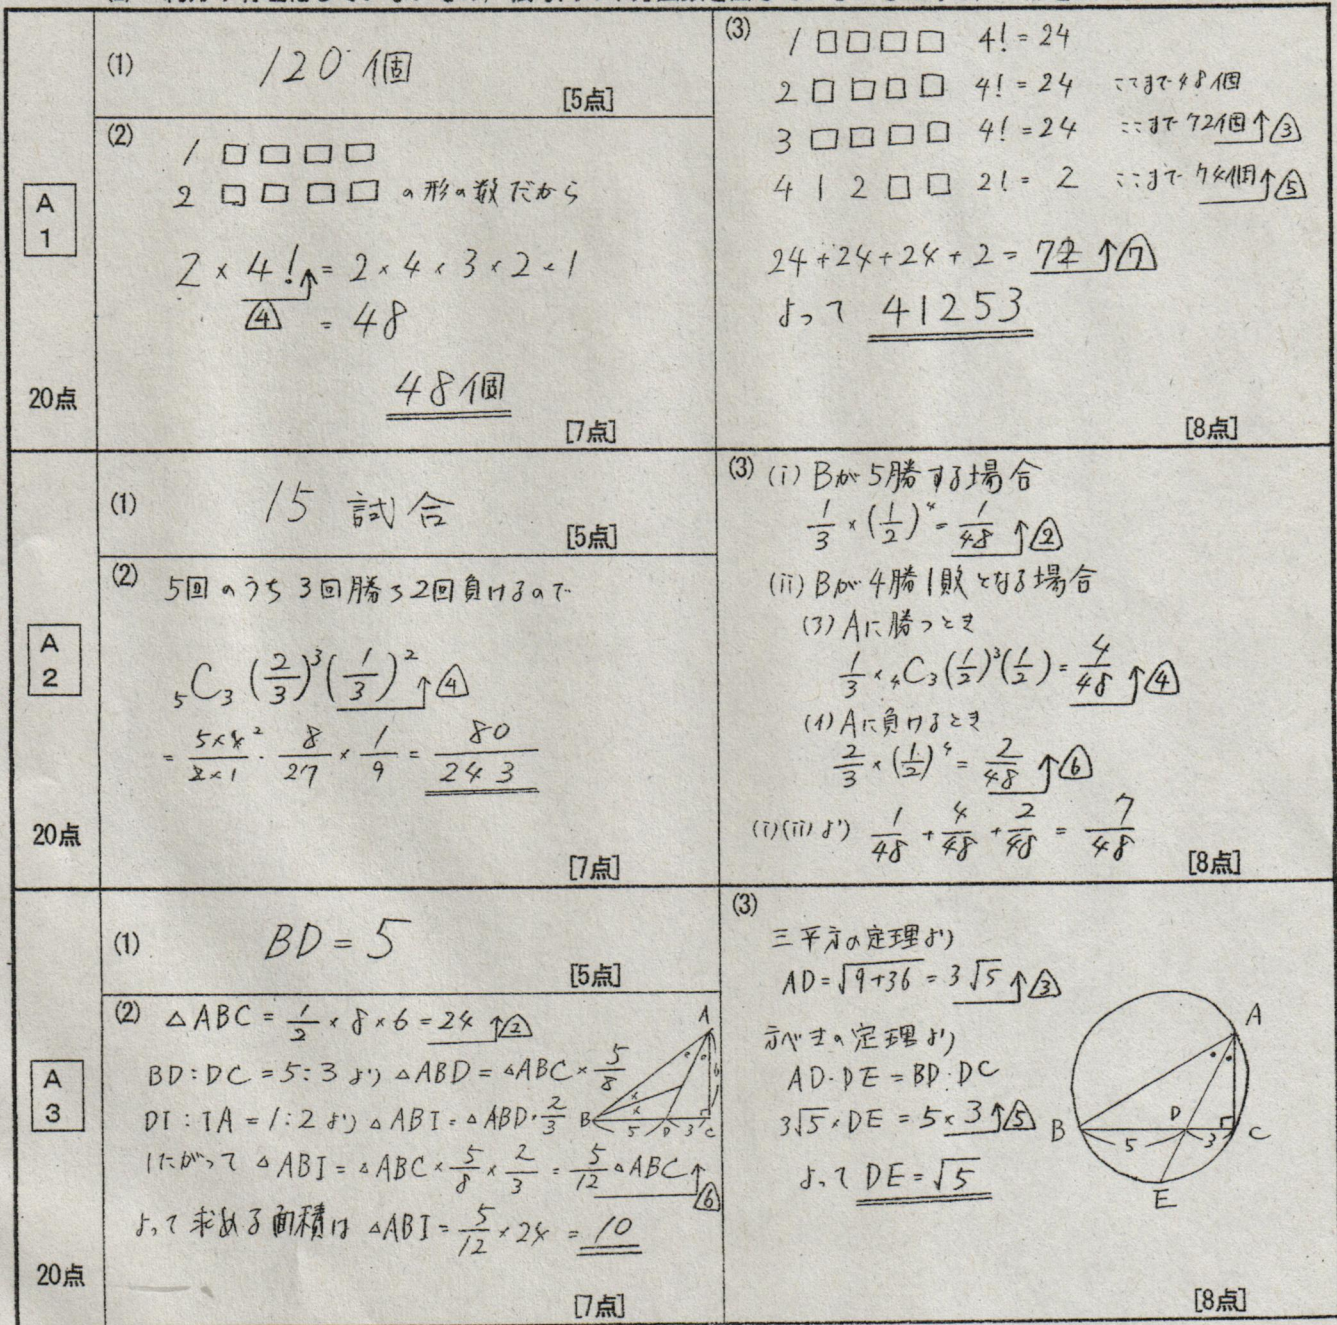 A
1
20点
(1) 120個
[5点]
(2)
1 □ □ □ □
2 □ □ □ □ の形の数だから
2 × 4! ↑ = 2 × 4 × 3 × 2 × 1
④ = 48
48個
[7点]
(3) 1 □ □ □ □ 4! = 24
2 □ □ □ □ 4! = 24 ここまで48個
3 □ □ □ □ 4! = 24 ここまで72個 ↑ ③
4 1 2 □ □ 2! = 2 ここまで74個 ↑ ⑤
24 + 24 + 24 + 2 = 74 ↑ ⑦
よって 41253
[8点]
A
2
20点
(1) 15 試合
[5点]
(2) 5回のうち3回勝ち2回負けるので
₅C₃ (2/3)³ (1/3)² ↑ ④
= 5×4/2×1 · 8/27 × 1/9 = 80/243
[7点]
(3) (i) Bが5勝する場合
1/3 × (1/2)⁴ = 1/48 ↑ ②
(ii) Bが4勝1敗となる場合
(ア) Aに勝つとき
1/3 × ₄C₃ (1/2)³ (1/2) = 4/48 ↑ ④
(イ) Aに負けるとき
2/3 × (1/2)⁴ = 2/48 ↑ ⑥
(i)(ii)より 1/48 + 4/48 + 2/48 = 7/48
[8点]
A
3
20点
(1) BD = 5
[5点]
(2) △ABC = 1/2 × 8 × 6 = 24 ↑ ②
BD : DC = 5 : 3 より △ABD = △ABC × 5/8
DI : IA = 1 : 2 より △ABI = △ABD · 2/3
したがって △ABI = △ABC × 5/8 × 2/3 = 5/12 △ABC ↑
⑥
よって求める面積は △ABI = 5/12 × 24 = 10
A
6
B 5 D 3 C
[7点]
(3)
三平方の定理より
AD = √9+36 = 3√5 ↑ ③
方べきの定理より
AD · DE = BD · DC
3√5 × DE = 5 × 3 ↑ ⑤
よって DE = √5
A
B 5 D 3 C
E
[8点]